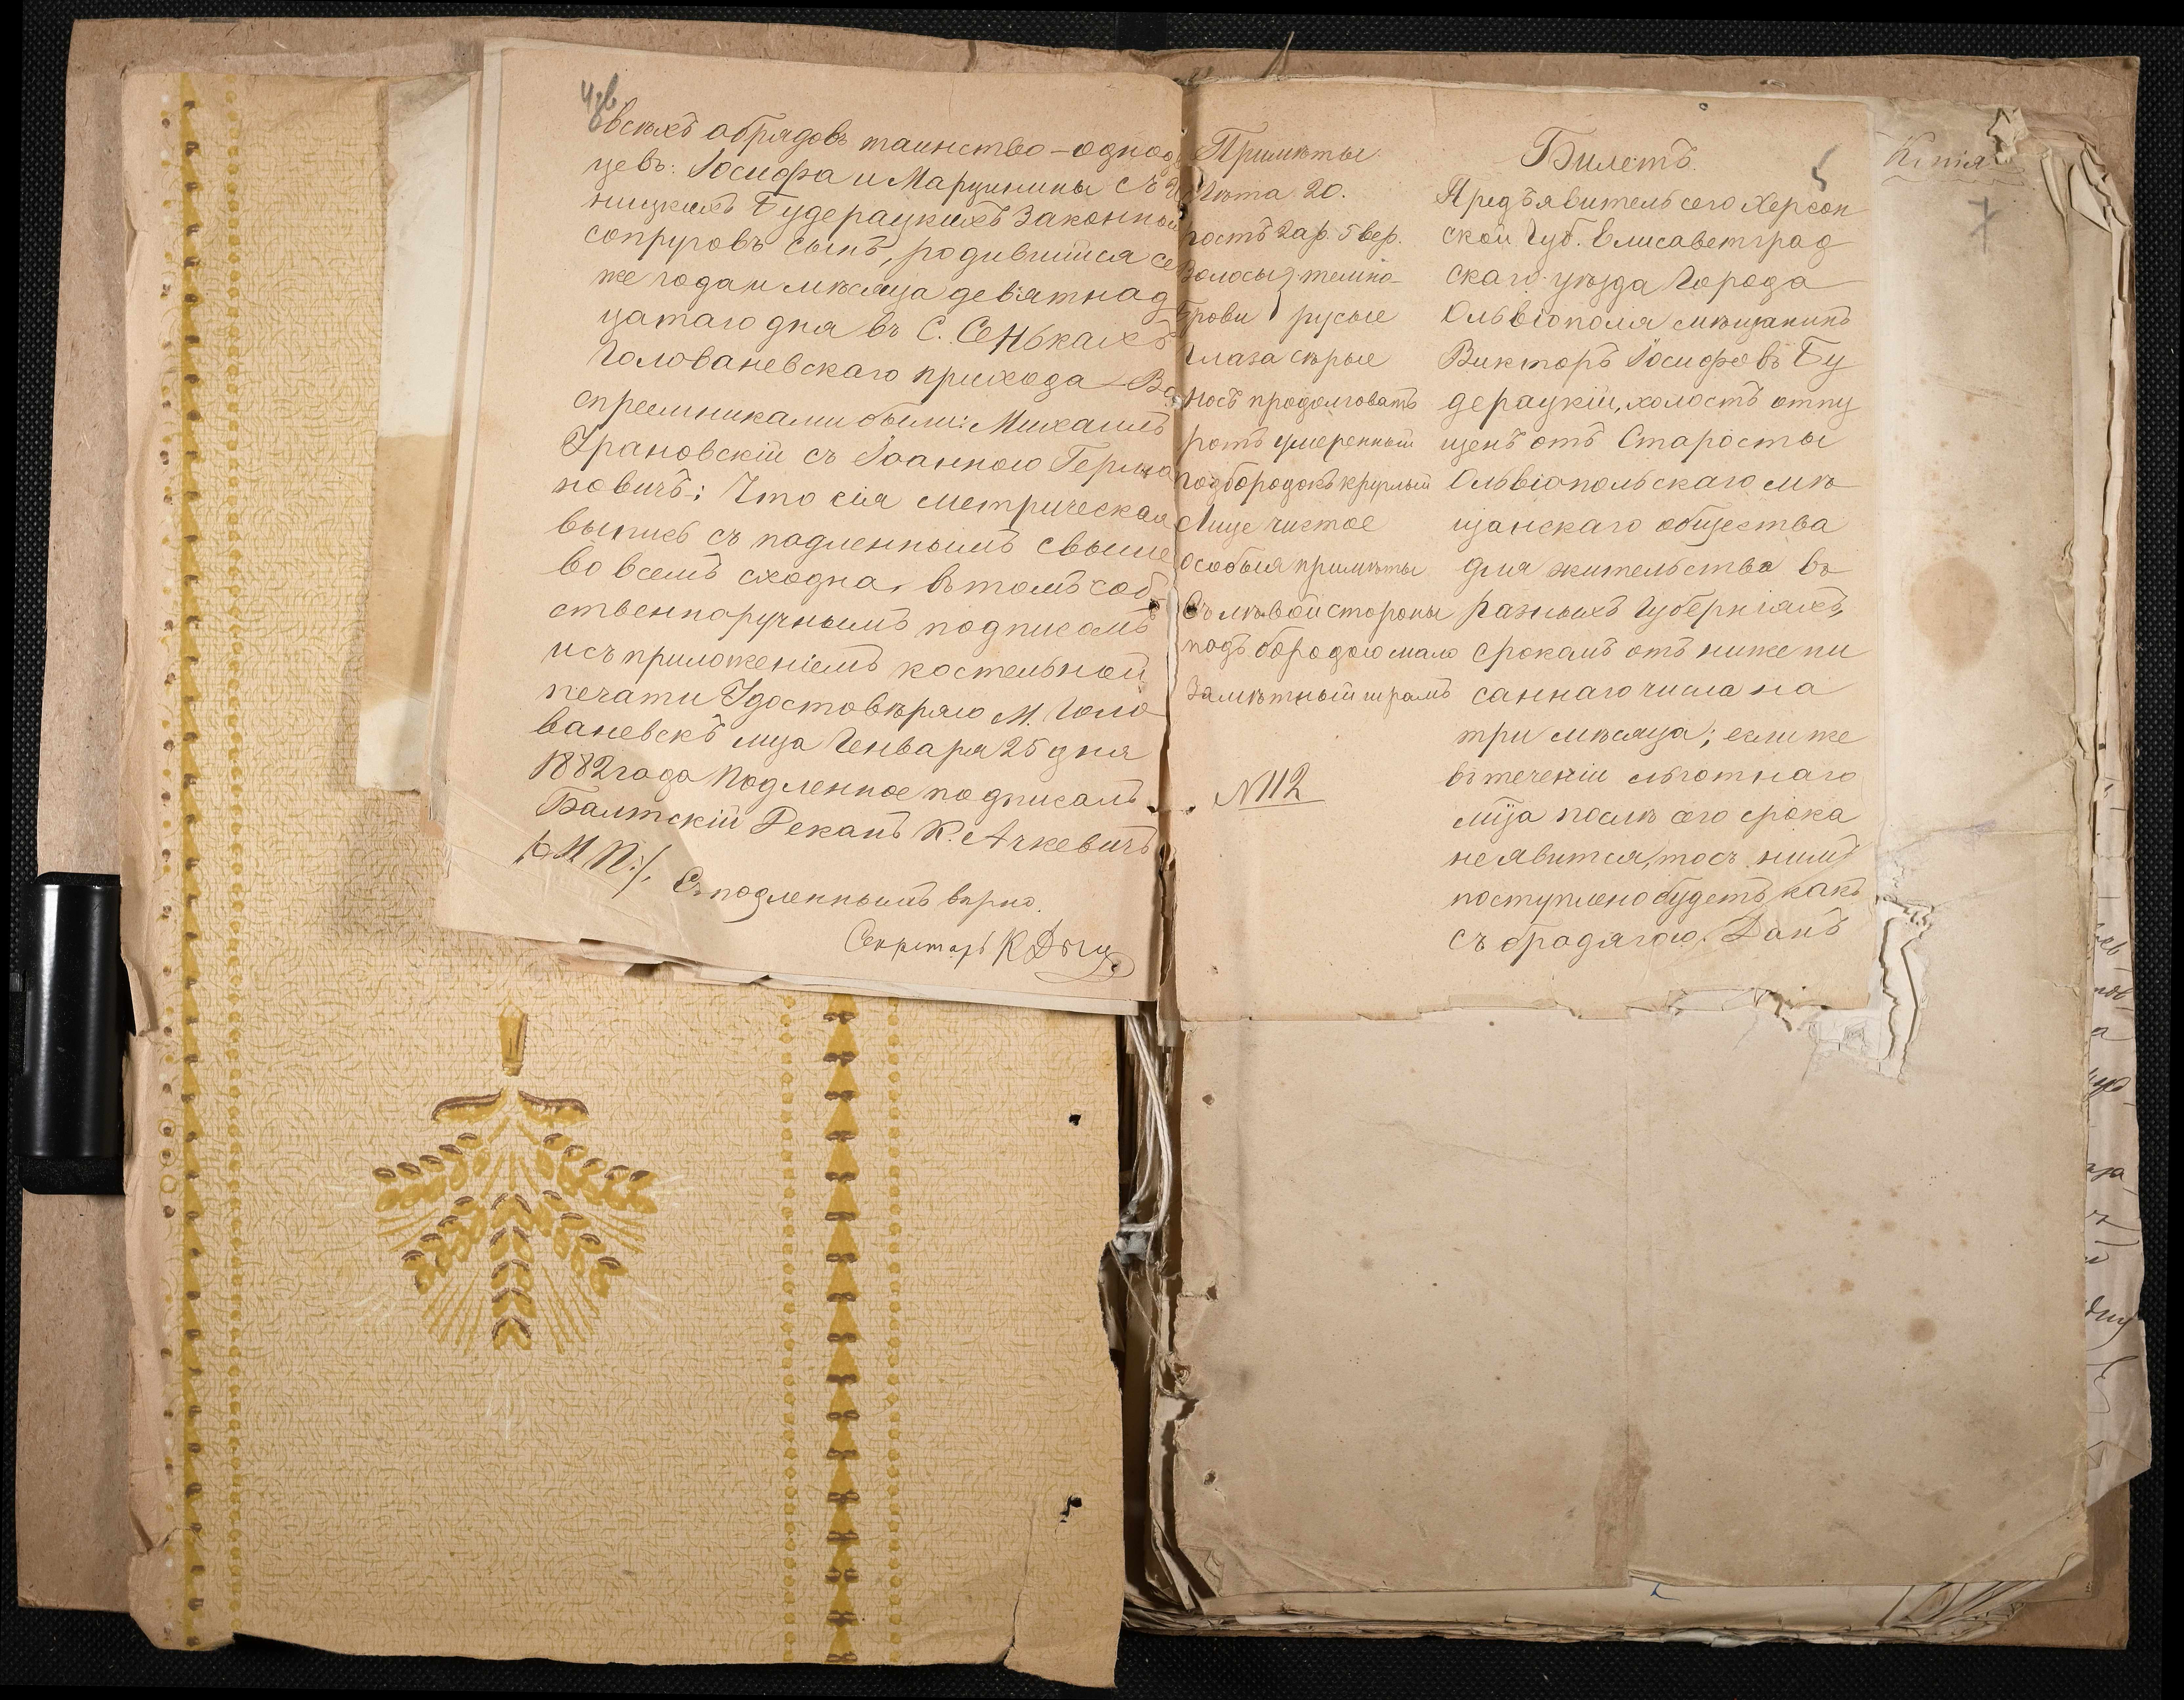 всѣхъ обрядовъ таинство – одно
цевъ: Іосифа и Марцинины съ
ницкихъ Будерацкихъ Законны
сопруговъ сынъ, родившійся се
же года и мѣсяца девятнад
цатаго дня въ С. Сенькахъ
Голованевскаго прихода – Во
спреемниками были: Михаилъ
Грановскій съ Іоанною Герма
новичъ; Что сія метрическая
выпись съ подленнымъ свыше
во всемъ сходна, въ томъ соб
ственноручнымъ подписомъ
и съ приложеніемъ костельной
печати Удостовѣряю М. Голо
ваневскъ мца Генваря 25 дня
1882 года Подленное подписалъ
Балтскій Деканъ К. Ачкевичъ
М. П.
Съ подленнымъ вѣрно.
Секретарь К
Примѣты
Лѣта 20.
ростъ 2 ар. 5 вер.
Волосы } темно-
Брови } русые
Глаза сѣрые
Носъ продолговатъ
ротъ умеренный
подбородокъ круглый
Лице чистое
особыя примѣты
Съ лѣвой стороны
подъ бородою мало
Замѣтный шрамъ
№ 112
Билетъ.
5
Предъявитель сего Херсон
ской Губ. Елисаветград
скаго уѣзда Города
Ольвіополя мѣщанинъ
Викторъ Іосифовъ Бу
дерацкій, холостъ отпу
щенъ отъ Старосты
Ольвіопольскаго мѣ
щанскаго общества
для жительства въ
разныхъ Губерніяхъ,
срокомъ отъ нижепи
саннаго числа на
три мѣсяца; если же
въ теченіи льготнаго
мца послѣ сего срока
не явится, то съ нимъ
поступлено будетъ какъ
съ бродягою. Данъ
Копія
7